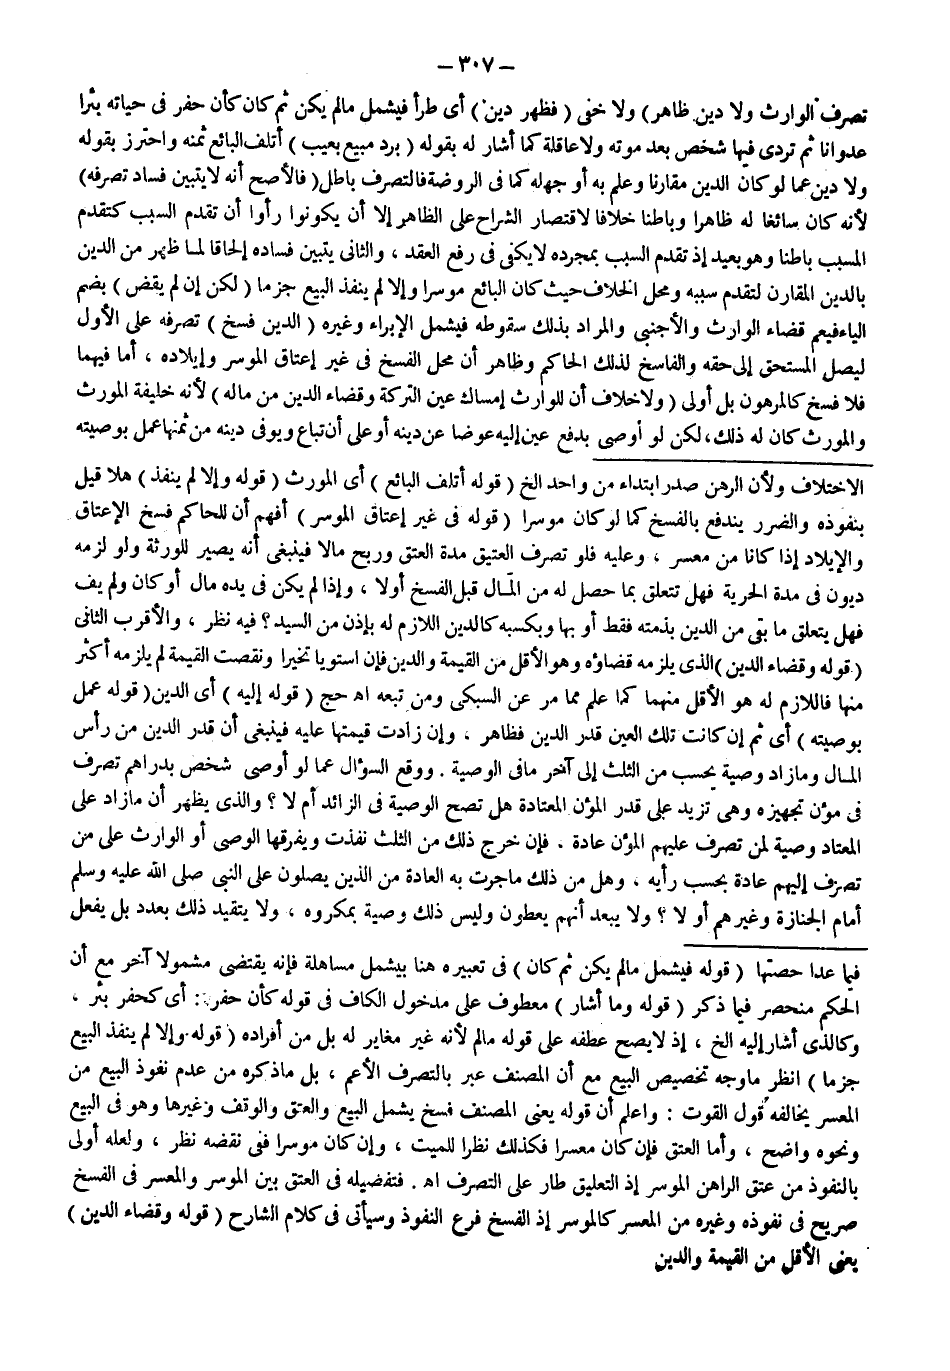 – ٣٠٧ –
تصرف الوارث ولا دين ظاهر) ولا خفى ( فظهر دين ) أى طرأ فيشمل مالم يكن ثم كان كأن حفر فى حياته بئرا
عدوانا ثم تردى فيها شخص بعد موته ولاعاقلة كما أشار له بقوله ( برد مبيع بعيب ) أتلف البائع ثمنه واحترز بقوله
ولا دين عما لو كان الدين مقارنا وعلم به أو جهله كما فى الروضة فالتصرف باطل( فالأصح أنه لايتبين فساد تصرفه)
لأنه كان سائغا له ظاهرا وباطنا خلافا لاقتصار الشراح على الظاهر إلا أن يكونوا رأوا أن تقدم السبب كتقدم
المسبب باطنا وهو بعيد إذ تقدم السبب بمجرده لايكفى فى رفع العقد ، والثانى يتبين فساده إلحاقا لمـا ظهر من الدين
بالدين المقارن لتقدم سببه ومحل الخلاف حيث كان البائع موسرا وإلا لم ينفذ البيع جزما ( لكن إن لم يقض ) بضم
الياء فيعم قضاء الوارث والأجنبى والمراد بذلك سقوطه فيشمل الإبراء وغيره ( الدين فسخ ) تصرفه على الأول
ليصل المستحق إلى حقه والفاسخ لذلك الحاكم وظاهر أن محل الفسخ فى غير إعتاق الموسر وإيلاده ، أما فيهما
فلا فسخ كالمرهون بل أولى ( ولاخلاف أن للوارث إمساك عين التركة وقضاء الدين من ماله ) لأنه خليفة المورث
والمورث كان له ذلك، لكن لو أوصى بدفع عين إليه عوضا عن دينه أو على أن تباع ويوفى دينه من ثمنها عمل بوصيته
الاختلاف ولأن الرهن صدر ابتداء من واحد الخ ( قوله أتلف البائع ) أى المورث ( قوله وإلا لم ينفذ ) هلا قيل
بنفوذه والضرر يندفع بالفسخ كما لو كان موسرا ( قوله فى غير إعتاق الموسر ) أفهم أن للحاكم فسخ الإعتاق
والإيلاد إذا كانا من معسر ، وعليه فلو تصرف العتيق مدة العتق وربح مالا فينبغى أنه يصير للورثة ولو لزمه
ديون فى مدة الحرية فهل تتعلق بما حصل له من المـال قبل الفسخ أولا ، وإذا لم يكن فى يده مال أو كان ولم يف
فهل يتعلق ما بقى من الدين بذمته فقط أو بها وبكسبه كالدين اللازم له بإذن من السيد ؟ فيه نظر ، والأقرب الثانى
( قوله وقضاء الدين )الذى يلزمه قضاؤه وهو الأقل من القيمة والدين فإن استويا تخيرا ونقصت القيمة لم يلزمه أكثر
منها فاللازم له هو الأقل منهما كما علم مما مر عن السبكى ومن تبعه اه حج ( قوله إليه ) أى الدين( قوله عمل
بوصيته ) أى ثم إن كانت تلك العين قدر الدين فظاهر ، وإن زادت قيمتها عليه فينبغى أن قدر الدين من رأس
المـال ومازاد وصية يحسب من الثلث إلى آخر مافى الوصية . ووقع السؤال عما لو أوصى شخص بدراهم تصرف
فى مؤن تجهيزه وهى تزيد على قدر المؤن المعتادة هل تصح الوصية فى الزائد أم لا ؟ والذى يظهر أن مازاد على
المعتاد وصية لمن تصرف عليهم المؤن عادة ، فإن خرج ذلك من الثلث نفذت ويفرقها الوصى أو الوارث على من
تصرف إليهم عادة بحسب رأيه ، وهل من ذلك ماجرت به العادة من الذين يصلون على النبى صلى الله عليه وسلم
أمام الجنازة وغيرهم أو لا ؟ ولا يبعد أنهم يعطون وليس ذلك وصية بمكروه ، ولا يتقيد ذلك بعدد بل يفعل
فيما عدا حصتها ( قوله فيشمل مالم يكن ثم كان ) فى تعبيره هنا بيشمل مساهلة فإنه يقتضى مشمولا آخر مع أن
الحكم منحصر فيما ذكر ( قوله وما أشار ) معطوف على مدخول الكاف فى قوله كأن حفر : أى كحفر بئر ،
وكالذى أشار إليه الخ ، إذ لايصح عطفه على قوله مالم لأنه غير مغاير له بل من أفراده ( قوله وإلا لم ينفذ البيع
جزما ) انظر ماوجه تخصيص البيع مع أن المصنف عبر بالتصرف الأعم ، بل ماذكره من عدم نفوذ البيع من
المعسر يخالفه قول القوت : واعلم أن قوله يعنى المصنف فسخ يشمل البيع والعتق والوقف وغيرها وهو فى البيع
ونحوه واضح ، وأما العتق فإن كان معسرا فكذلك نظرا للميت ، وإن كان موسرا ففى نقضه نظر ، ولعله أولى
بالنفوذ من عتق الراهن الموسر إذ التعليق طار على التصرف اه . فتفضيله فى العتق بين الموسر والمعسر فى الفسخ
صريح فى نفوذه وغيره من المعسر كالموسر إذ الفسخ فرع النفوذ وسيأتى فى كلام الشارح ( قوله وقضاء الدين )
يعنى الأقل من القيمة والدين